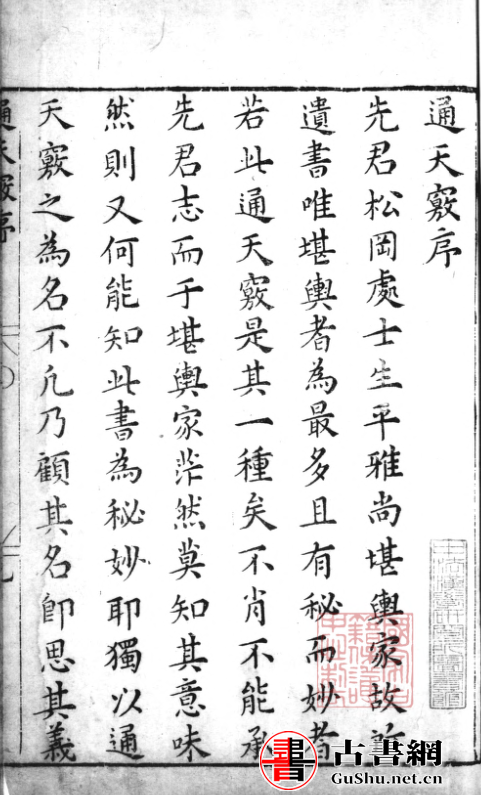 通天竅序
先君松岡處士生平雅尚堪輿家故所
遺書唯堪輿者為最多且有秘而妙者
若此通天竅是其一種矣不肖不能承
先君志而于堪輿家茫然莫知其意味
然則又何能知此書為秘妙耶獨以通
天竅之為名不凡乃顧其名即思其義
通天竅序
書 古書網
GuShu.net.cn